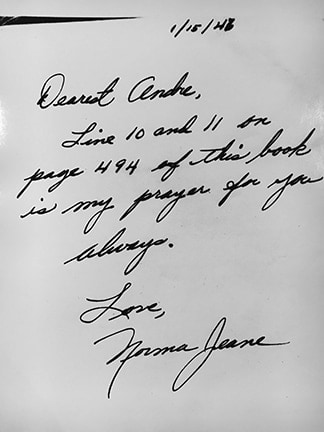 1/15/46
Dearest Andre,
Line 10 and 11 on
page 494 of this book
is my prayer for you
always.
Love,
Norma Jeane